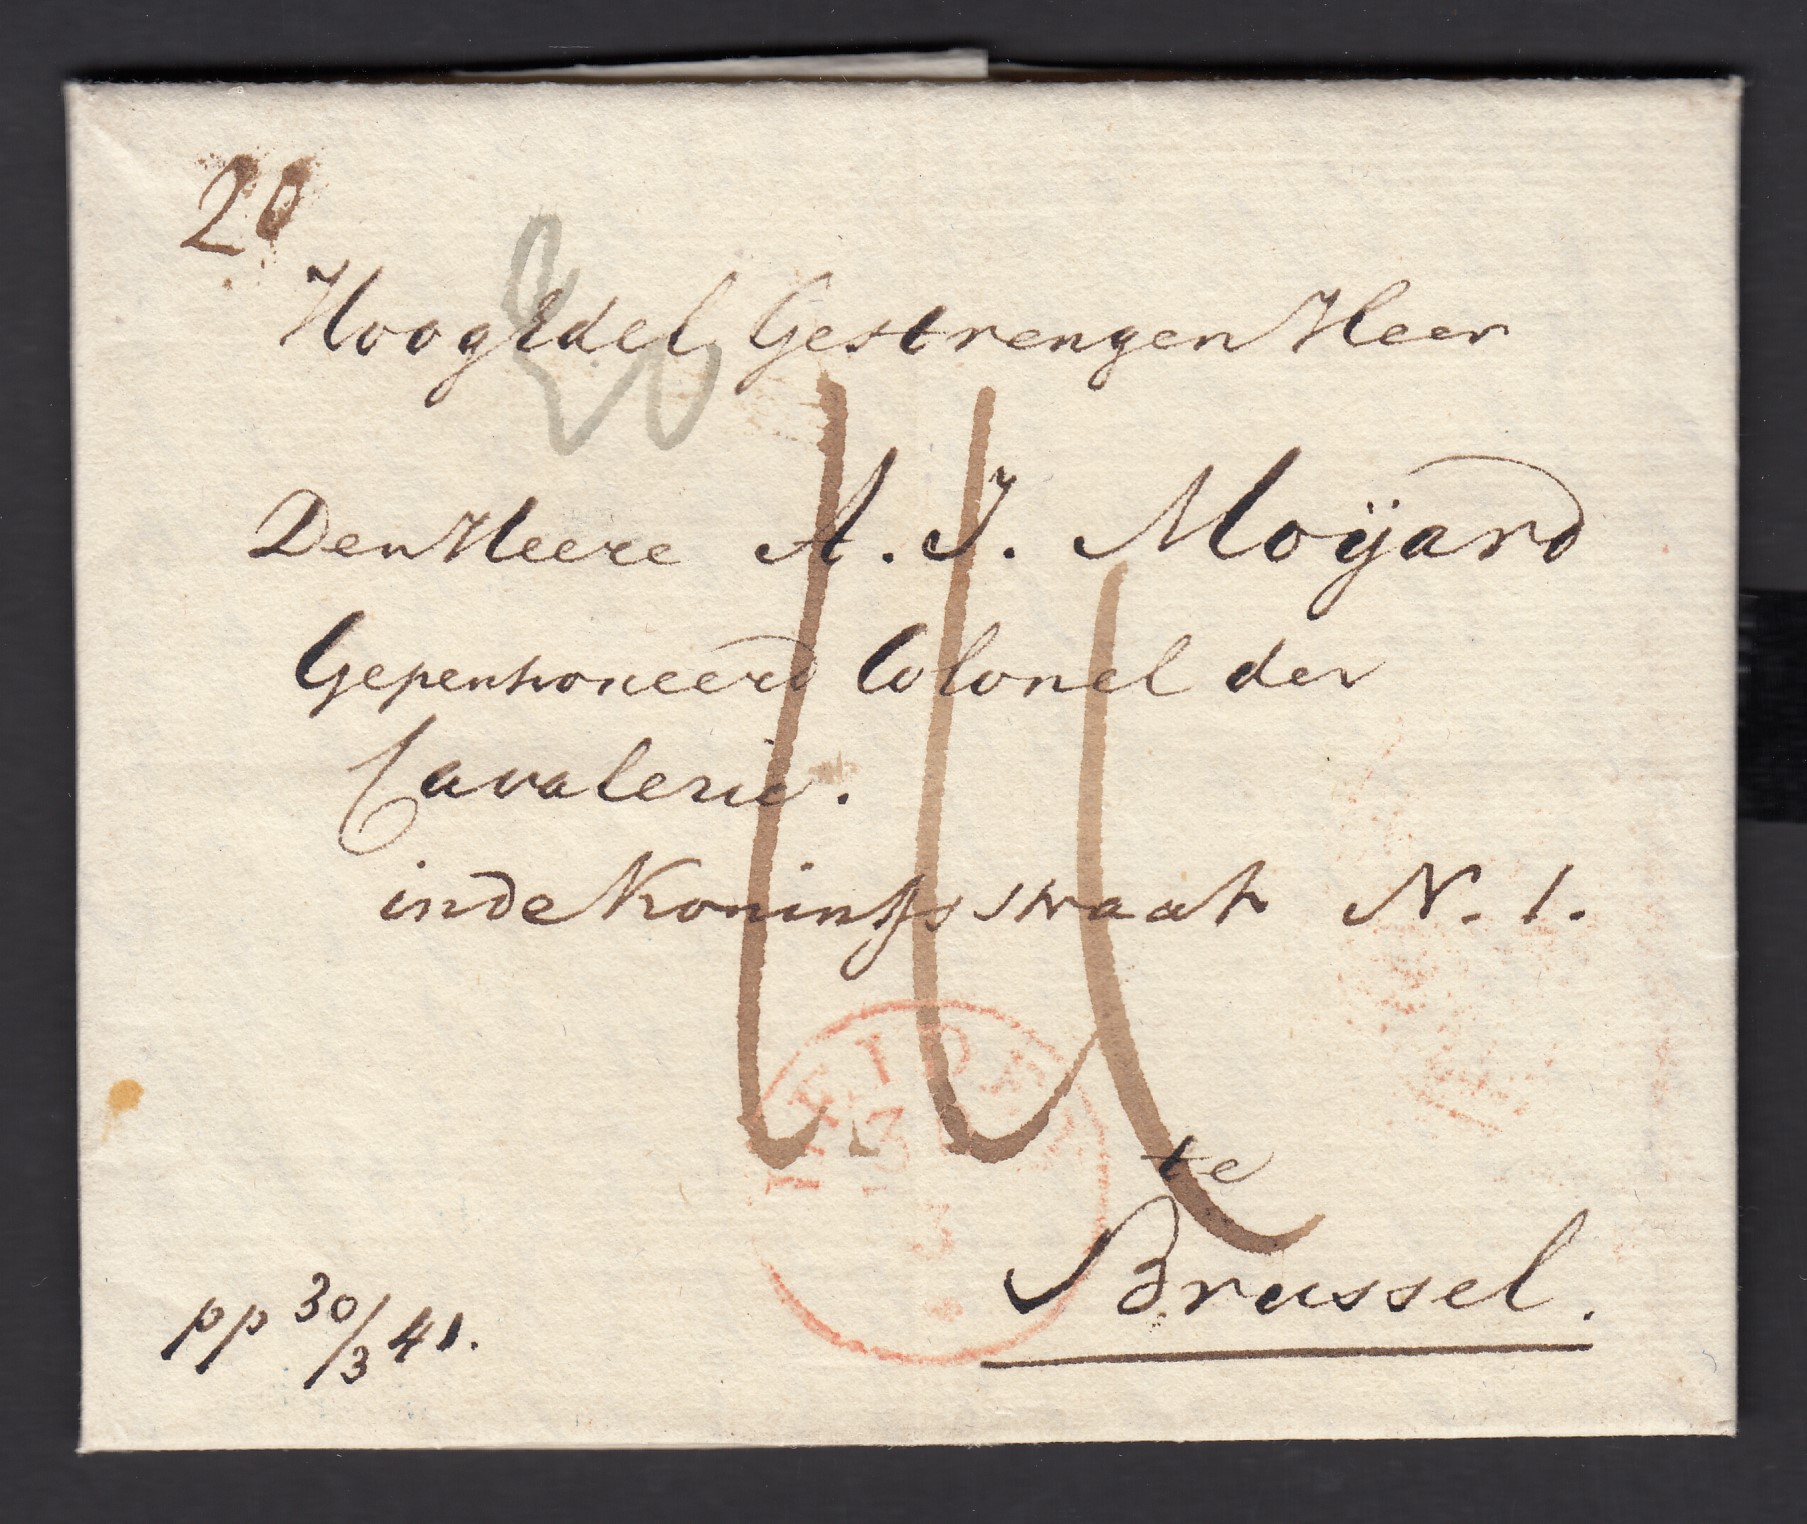 20
20
HoogEdel Gestrengen Heer
Den Heere A. J. Moÿard
Gepensioneerd Colonel der
Cavalerie.
in de Koninks straat N. 1.
LEIDEN
31
3
te
Brussel.
pp 30/3 41.